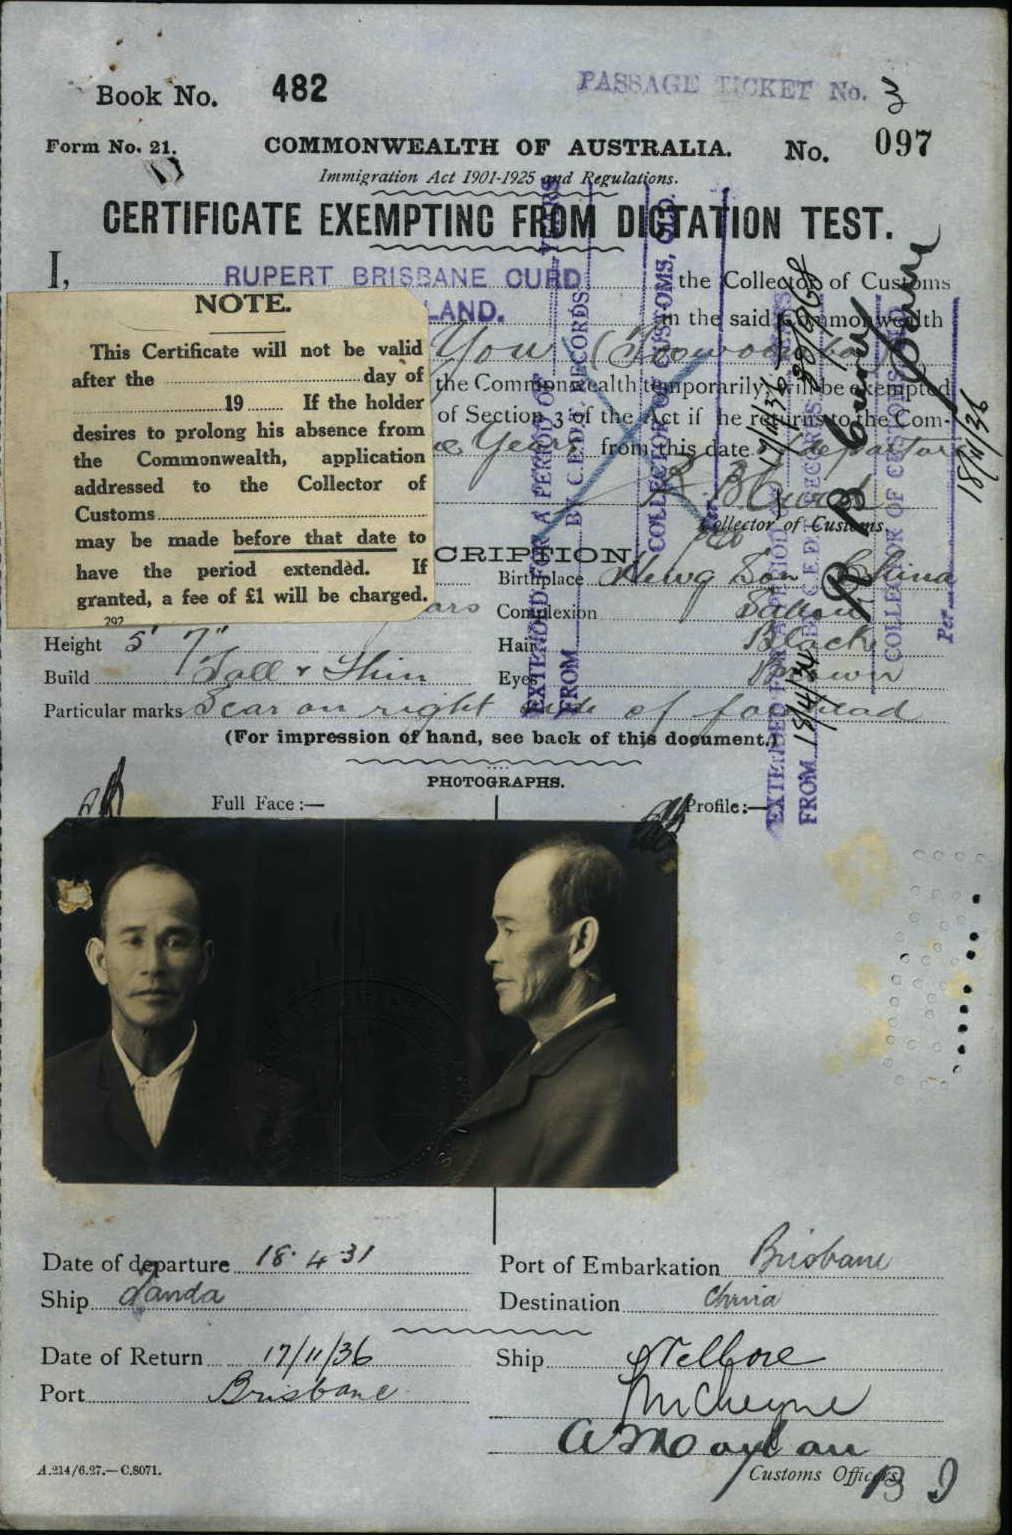 PASSAGE TICKET No.
Book No. 482
Form No. 21.
COMMONWEALTH OF AUSTRALIA.
No. 097
Immigration Act 1901-1925 and Regulations.
CERTIFICATE EXEMPTING FROM DICTATION TEST.
I, RUPERT BRISBANE CURD the Collector of Customs
LAND. in the said Commonwealth
You (Toowoomba)
the Commonwealth temporarily, will be exempted
of Section 3 of the Act if he returns to the Com-
Years from this date
R. B. Curd
Collector of Customs.
NOTE.
This Certificate will not be valid
after the day of
19 If the holder
desires to prolong his absence from
the Commonwealth, application
addressed to the Collector of
Customs
may be made before that date to
have the period extended. If
granted, a fee of £1 will be charged.
292
CRIPTION.
Birthplace China
Complexion
Height 5' 7"
Hair Black
Build Tall & Thin
Eyes Brown
Particular marks Scar on right side of forehead
(For impression of hand, see back of this document.)
PHOTOGRAPHS.
Full Face:—
Profile:—
EXTENDED FOR A PERIOD OF YEARS
FROM BY C.E.D.T. RECORDS
COLLECTOR OF CUSTOMS, QLD.
EXTENDED FOR A PERIOD
FROM 18/4/34
COLLECTOR OF CUSTOMS
Per
18/11/36
Date of departure 18.4.31
Port of Embarkation Brisbane
Ship Tanda
Destination China
Date of Return 17/11/36
Ship Nellore
Port Brisbane
Customs Officers.
A.214/6.27.—C.8071.